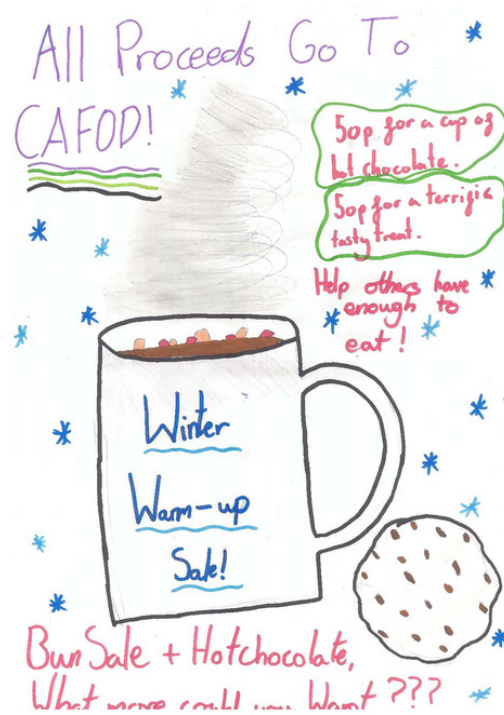 All Proceeds Go To
CAFOD!
50p for a cup of
hot chocolate.
50p for a terrific
tasty treat.
Help others have
enough to
eat!
Winter
Warm-up
Sale!
Bun Sale + Hotchocolate,
What more could you Want ???